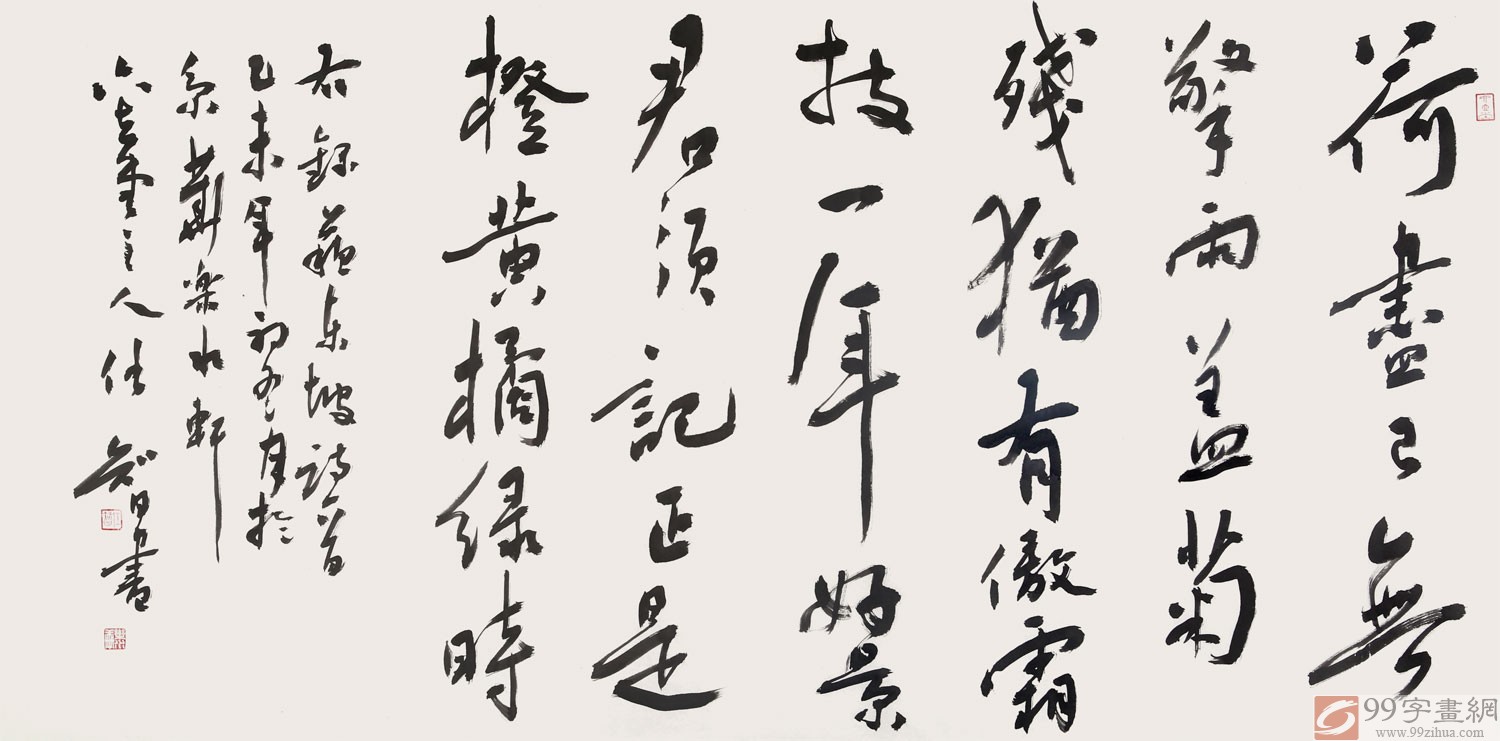 荷盡已無
擎雨盖菊
殘猶有傲霜
枝一年好景
君須記正是
橙黄橘緑時
右録蘇東坡詩一首
乙未年初冬月於
京樂水軒
主人任智書
99字畫網
www.99zihua.com